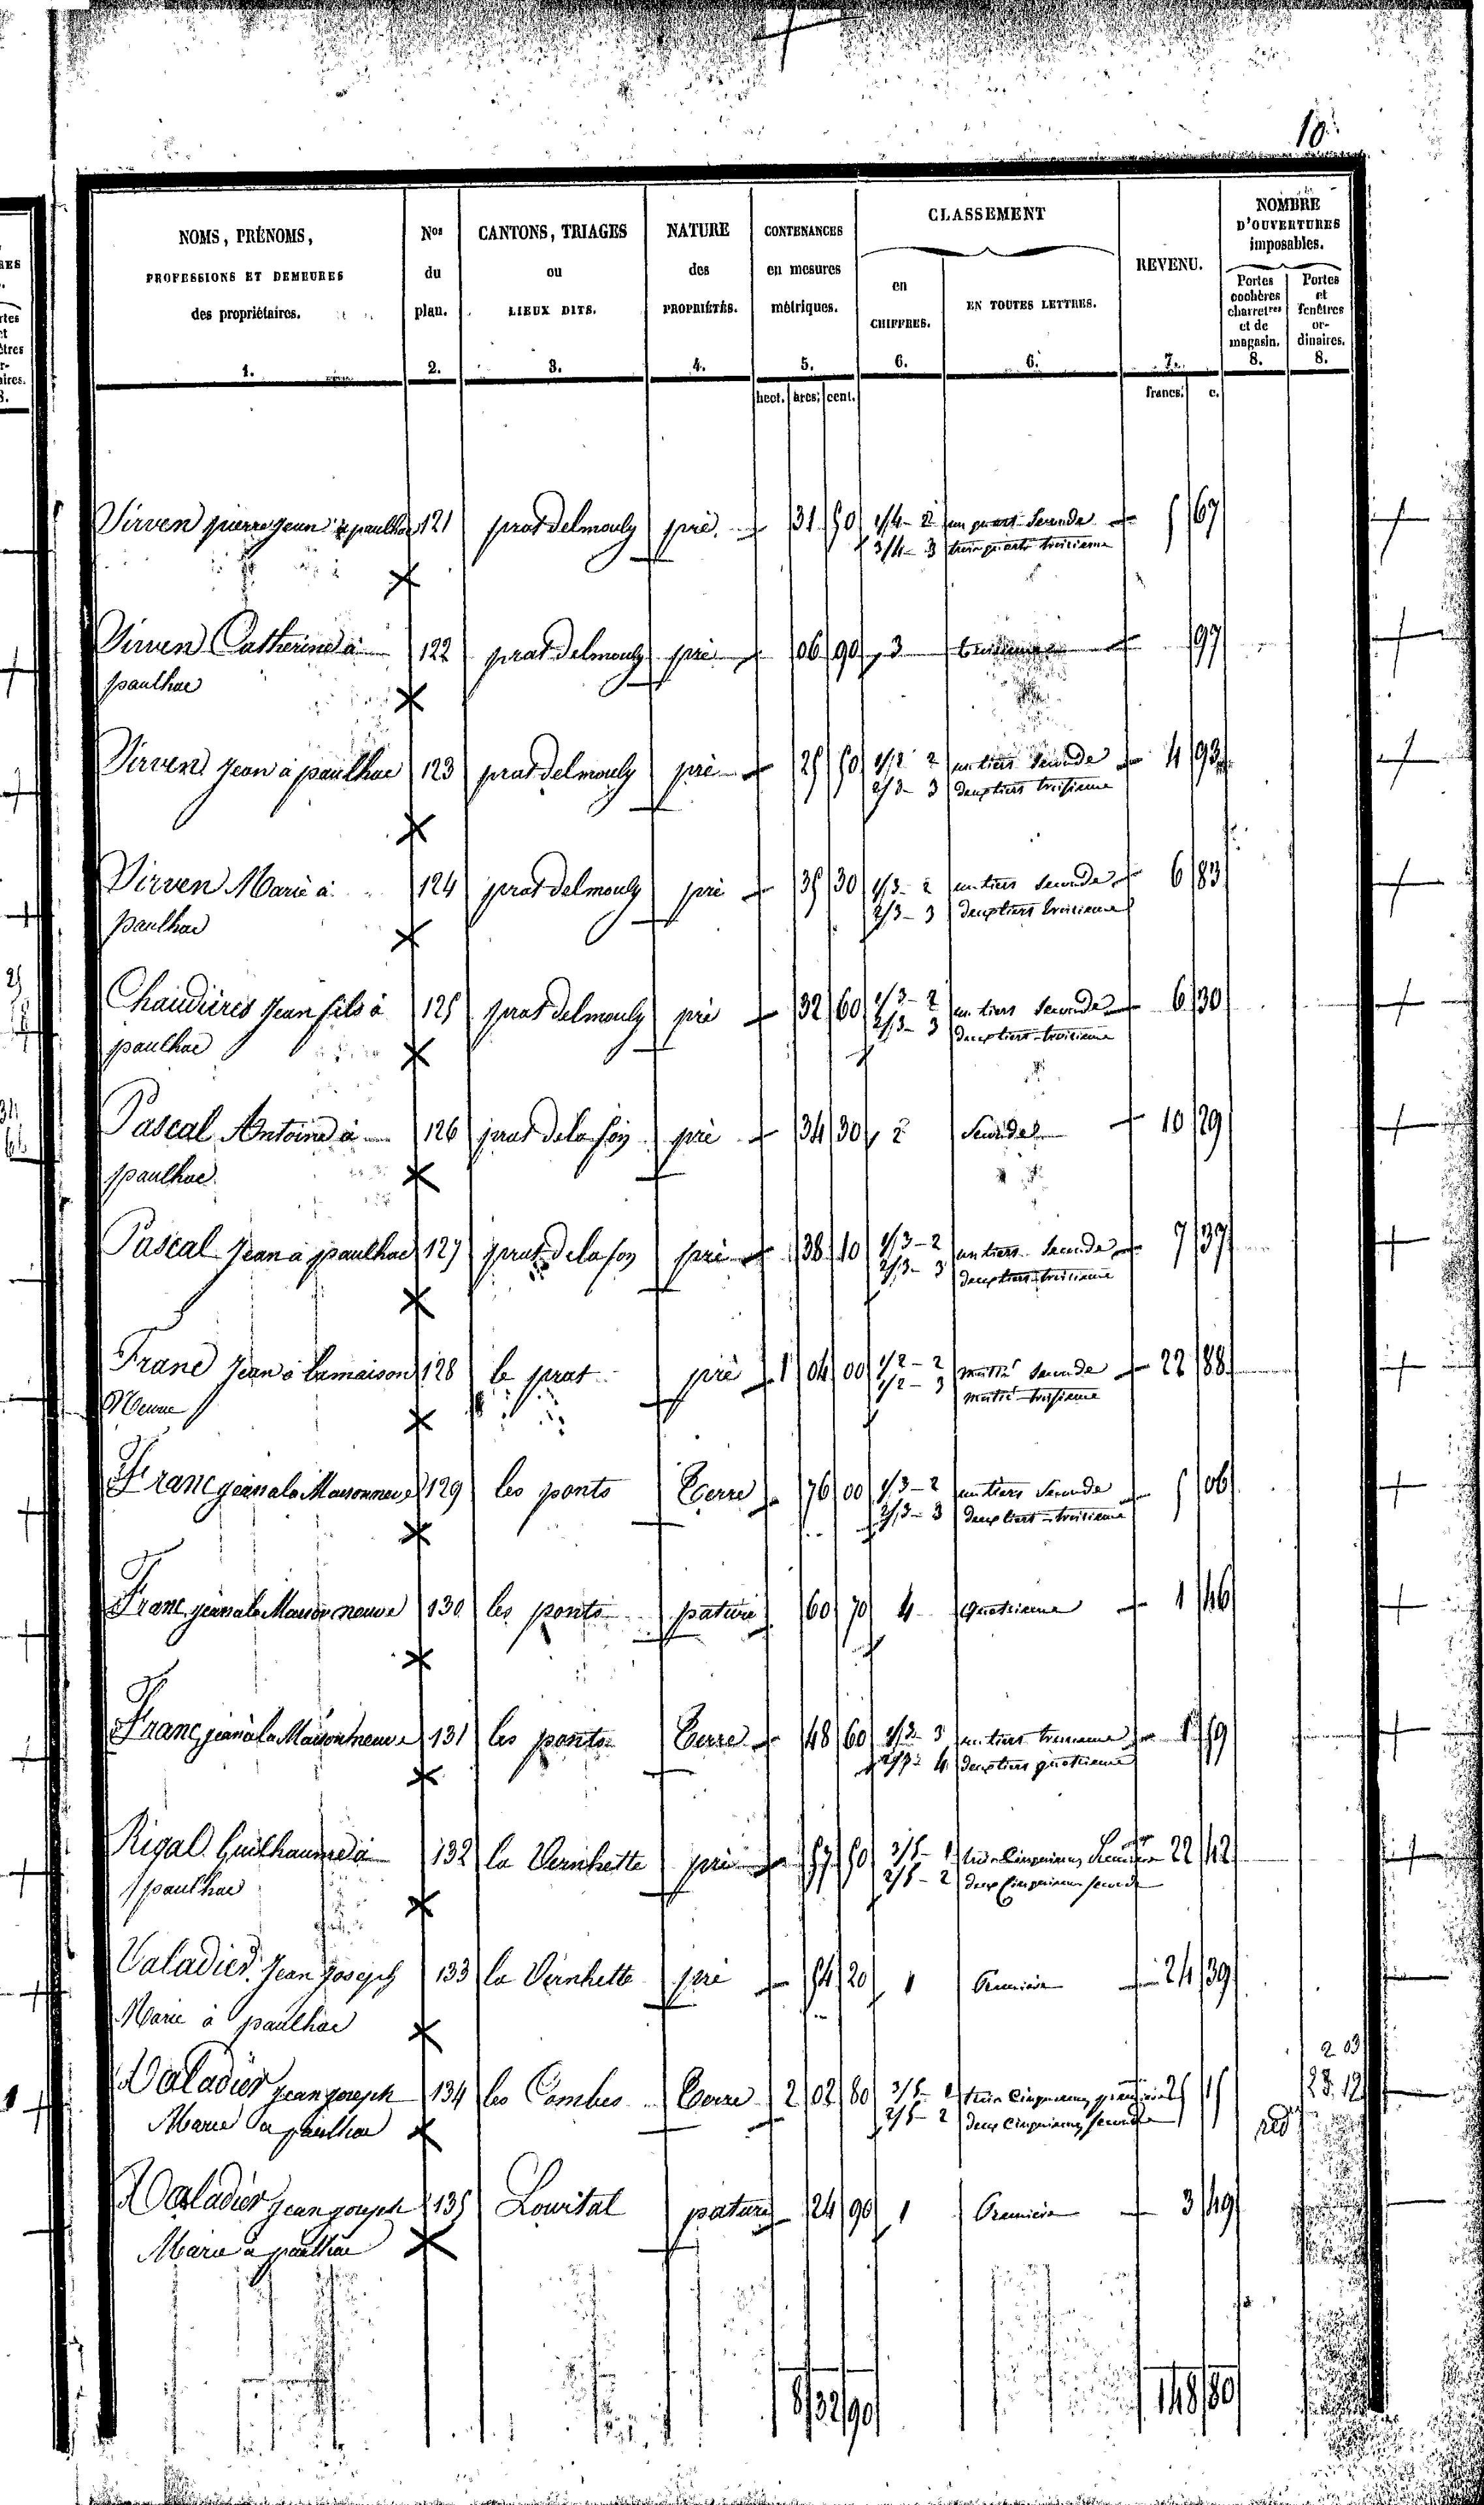 10
NOMS, PRÉNOMS,
PROFESSIONS ET DEMEURES
des propriétaires.
1.
Nos
du
plan.
2.
CANTONS, TRIAGES
ou
LIEUX DITS.
3.
NATURE
des
PROPRIÉTÉS.
4.
CONTENANCES
en mesures
métriques.
5.
CLASSEMENT
en
CHIFFRES.
6.
EN TOUTES LETTRES.
6.
REVENU.
7.
NOMBRE
D'OUVERTURES
imposables.
Portes
cochères
charretres
et de
magasin.
8.
Portes
et
fenêtres
or-
dinaires.
8.
hect. ares. cent. francs. c.
Virven pierre jean à paulhac 121 prat delmouly pré 31 50 1/4 - 2 un quart Seconde 5 67
3/4 - 3 trois quarts troisieme
Virven Catherine à 122 prat delmouly pré 06 90 3 troisieme 97
paulhac
Virven Jean à paulhac 123 prat delmouly pré 25 50 1/3 2 un tiers Seconde 4 93
2/3 - 3 deux tiers troisieme
Virven Marie à 124 prat delmouly pré 35 30 1/3 - 2 un tiers Seconde 6 83
paulhac 2/3 - 3 deux tiers troisieme
Chaudières Jean fils à 125 prat delmouly pré 32 60 1/3 - 2 un tiers Seconde 6 30
paulhac 2/3 - 3 deux tiers troisieme
Pascal Antoine à 126 prat de la fon pré 34 30 2 Seconde 10 29
paulhac
Pascal Jean à paulhac 127 prat de la fon pré 38 10 1/3 - 2 un tiers Seconde 7 37
2/3 - 3 deux tiers troisieme
Franc Jean à lamaison 128 le prat pré 1 04 00 1/2 - 2 moitié Seconde 22 88
Neuve 1/2 - 3 moitié troisieme
Franc jean à la Maisonneuve 129 les ponts Terre 76 00 1/3 - 2 un tiers Seconde 5 06
2/3 - 3 deux tiers troisieme
Franc jean à la Maison neuve 130 les ponts pature 60 70 4 Quatrieme 1 46
Franc jean à la Maison neuve 131 les ponts Terre 48 60 1/3 3 un tiers troisieme 1 59
2/3 4 deux tiers quatrieme
Rigal Guilhaume à 132 la Vernhette pré 57 50 3/5 - 1 trois Cinquiemes Premiere 22 42
paulhac 2/5 - 2 deux Cinquiemes seconde
Valadier Jean Joseph 133 la Vernhette pré 54 20 1 Premiere 24 39
Marie à paulhac
Valadier jean joseph 134 les Combes Terre 2 02 80 3/5 - 1 trois Cinquiemes premiere 25 15
Marie à paulhac 2/5 - 2 deux Cinquiemes seconde
Valadier jean joseph 135 Louvital pature 24 90 1 Premiere 3 49
Marie à paulhac
8 32 90 148 80